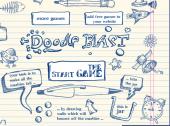 more games
add free games to
your website
Doodle Blast
START THE GAME
your task is to
make all the
marbles fall
into
this
jar
... by drawing
walls which will
bounce off the marbles ...